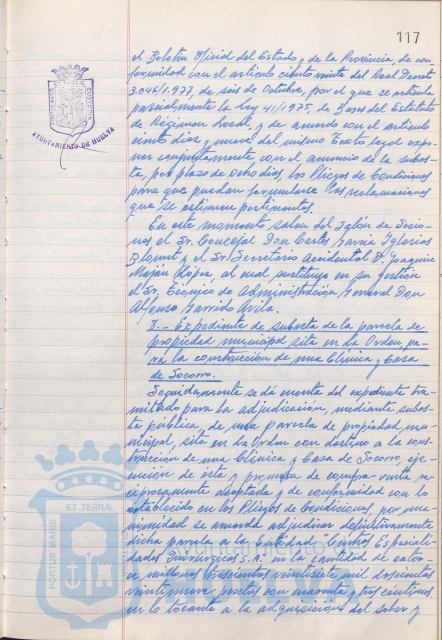 117
el Boletín Oficial del Estado y de la Provincia, de con-
formidad con el artículo ciento veinte del Real Decreto
3.046/1.977, de seis de Octubre, por el que se articula
parcialmente la Ley 41/1975 de Bases del Estatuto
de Régimen Local, y de acuerdo con el artículo
ciento diez y nueve del mismo Texto legal expo-
ner conjuntamente, con el anuncio de la subas-
ta, por plazo de ocho días los Pliegos de Condiciones
para que puedan formularse las reclamaciones
que se estimen pertinentes.
En este momento salen del Salón de Sesio-
nes el Sr. Concejal Don Carlos García Iglesias
y el Sr. Secretario accidental D. Joaquín
López, al cual sustituye en su gestión
el Sr. Técnico de Administración General Don
Alfonso Garrido Avila.
Expediente de subasta de la parcela de
propiedad municipal sita en La Orden, pa-
ra la construcción de una Clínica y Casa
de Socorro.
Seguidamente se dá cuenta del expediente tra-
mitado para la adjudicación, mediante subas-
ta pública, de una parcela de propiedad mu-
nicipal, sita en La Orden con destino a la cons-
trucción de una Clínica y Casa de Socorro, eje-
cución de ésta y promesa de compra-venta re-
cíprocamente aceptada y de conformidad con lo
establecido en los Pliegos de Condiciones, por una-
nimidad se acuerda adjudicar definitivamente
dicha parcela a la Entidad "Centros Especiali-
dades Quirúrgicas S.A." en la cantidad de cator-
ce millones trescientas veintisiete mil doscientas
veintinueve pesetas con cuarenta y tres céntimos
en lo tocante a la adquisición del solar y
AYUNTAMIENTO DE HUELVA
PORTUS MARIS
ET TERRÆ